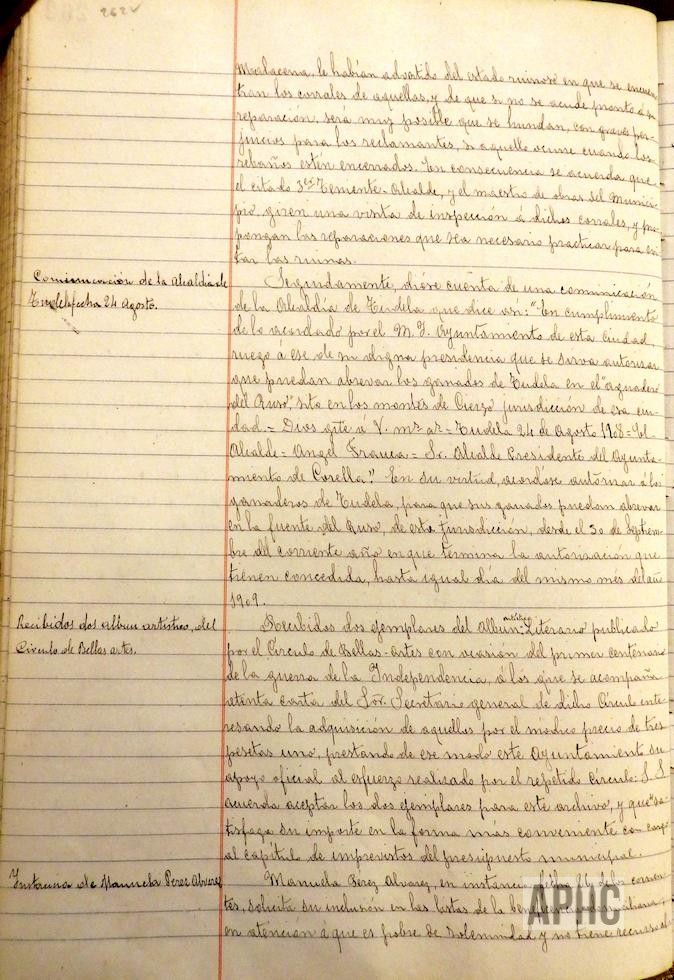 262v
Malacena, le habían advertido del estado ruinoso en que se encuen-
tran los corrales de aquellas, y de que si no se acude pronto á su
reparación, será muy posible que se hundan, con graves per-
juicios para los reclamantes, si aquello ocurre cuando los
rebaños estén encerrados. En consecuencia se acuerda que
el citado 3er Teniente-Alcalde, y el maestro de obras del Munici-
pio, giren una visita de inspección á dichos corrales, y pro-
pongan las reparaciones que sea necesario practicar para evi-
tar las ruinas.
Comunicación de la Alcaldía de
Tudela fecha 24 Agosto.
Seguidamente, dióse cuenta de una comunicación
de la Alcaldía de Tudela que dice así: "En cumplimiento
de lo acordado por el M. I. Ayuntamiento de esta ciudad,
ruego á ese de su digna presidencia que se sirva autorizar
que puedan abrevar los ganados de Tudela en el "aguadero
del Ruso", sito en los montes de Cierzo jurisdicción de esa ciu-
dad. = Dios gde á V. ms as = Tudela 24 de Agosto 1908 = El
Alcalde = Angel Frauca = Sr. Alcalde Presidente del Ayunta-
miento de Corella." En su virtud, acordóse autorizar á los
ganaderos de Tudela, para que sus ganados puedan abrevar
en la fuente del Ruso, de esta jurisdicción, desde el 30 de Septiem-
bre del corriente año en que termina la autorización que
tienen concedida, hasta igual día del mismo mes del año
1909.
Recibidos dos album artístico, del
Círculo de Bellas artes.
Recibidos dos ejemplares del Album Literario publicado
por el Círculo de Bellas-Artes con ocasión del primer centenario
de la guerra de la Independencia, á los que se acompaña
atenta carta del Sor. Secretario general de dicho Círculo inte-
resando la adquisición de aquellos por el módico precio de tres
pesetas uno, prestando de ese modo este Ayuntamiento su
apoyo oficial al esfuerzo realizado por el repetido círculo: S. S.
acuerda aceptar los dos ejemplares para este archivo, y que sa-
tisfaga su importe en la forma más conveniente con cargo
al capítulo de imprevistos del presupuesto municipal.
Instancia de Manuela Perez Alvarez
Manuela Pérez Alvarez, en instancia de los corrien-
tes, solicita su inclusión en las listas de la beneficencia domiciliaria,
en atención á que es pobre de solemnidad y no tiene recursos
APHC